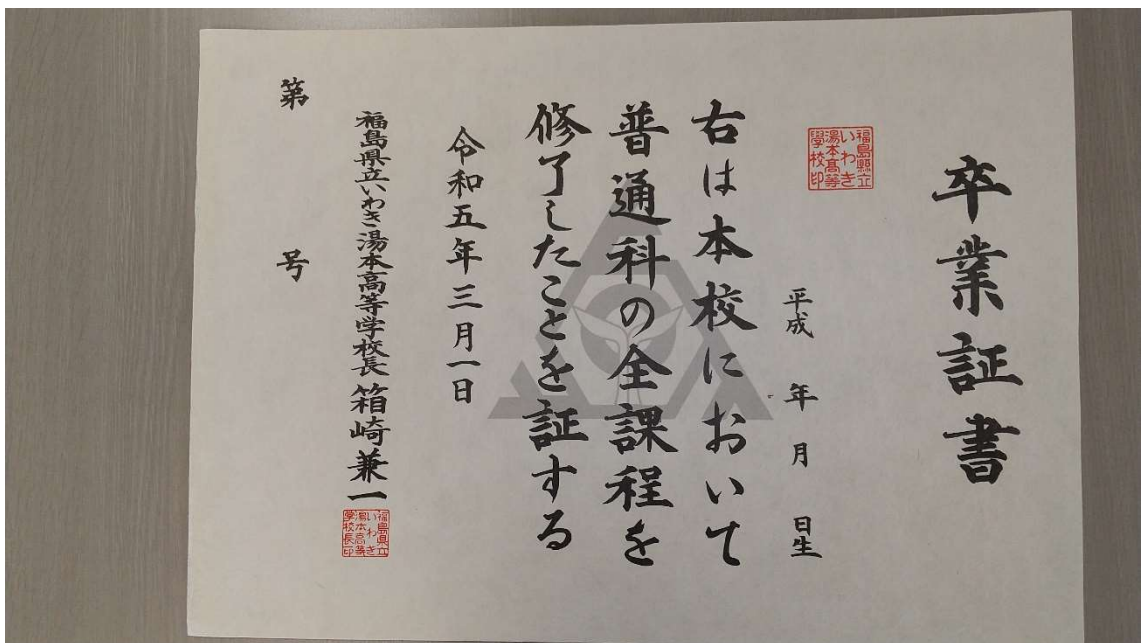 卒業証書
福島縣立
いわき
湯本高等
學校印
平成 年 月 日生
右は本校において
普通科の全課程を
修了したことを証する
令和五年三月一日
福島県立いわき湯本高等学校長 箱崎兼一
福島県立
いわき
湯本高等
学校長印
第 号